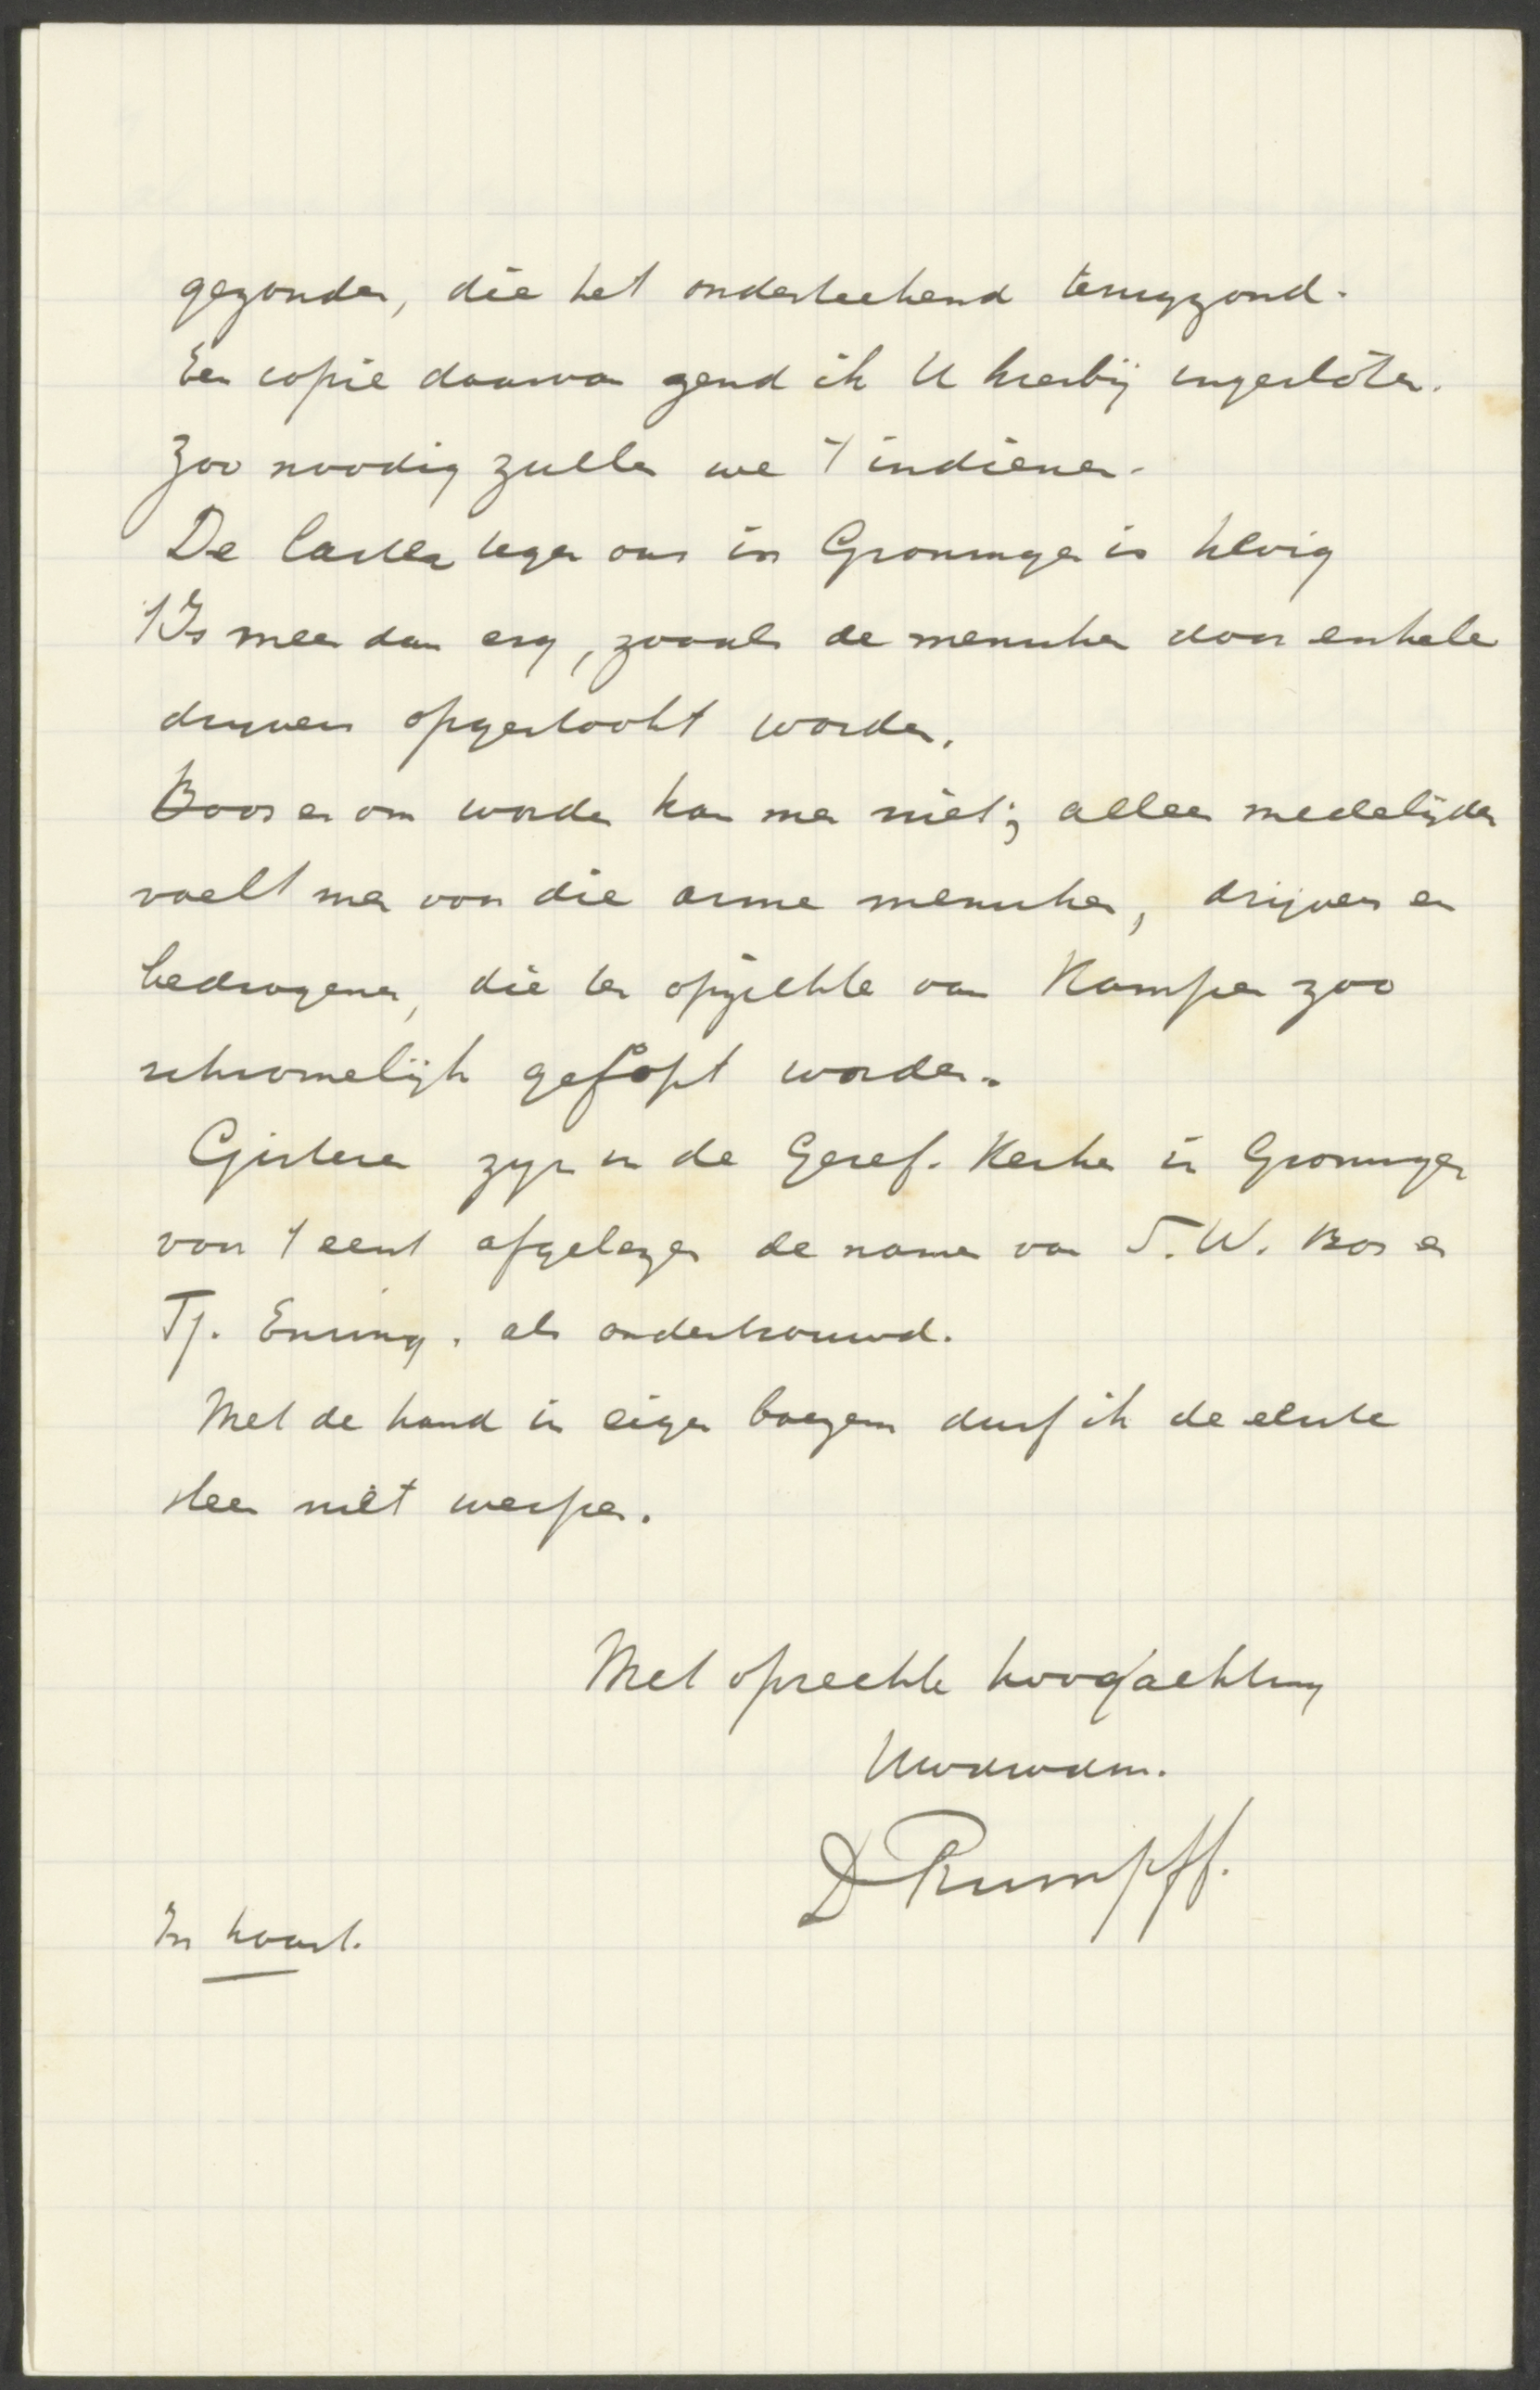 gezonden, die het onderteekend terugzond.
Een copie daarvan zend ik U hierbij ingesloten.
Zoo noodig zullen we 't indienen.
De laster tegen ons in Groningen is hevig
't Is meer dan erg, zooals de menschen door enkele
drijvers opgestookt worden.
Boos er om worden kan men niet; alleen medelijden
voelt men voor die arme menschen, drijvers en
bedrogenen, die ten opzichte van Kampen zoo
schromelijk gefopt worden.
Gisteren zijn in de Geref. Kerken in Groningen
voor 't eerst afgelezen de namen van S. W. Bos en
Tj. Ensing. als ondertrouwd.
Met de hand in eigen boezem durf ik de eerste
steen niet werpen.
Met oprechte hoogachting
Uwdwdnr.
D Rumpff.
In haast.